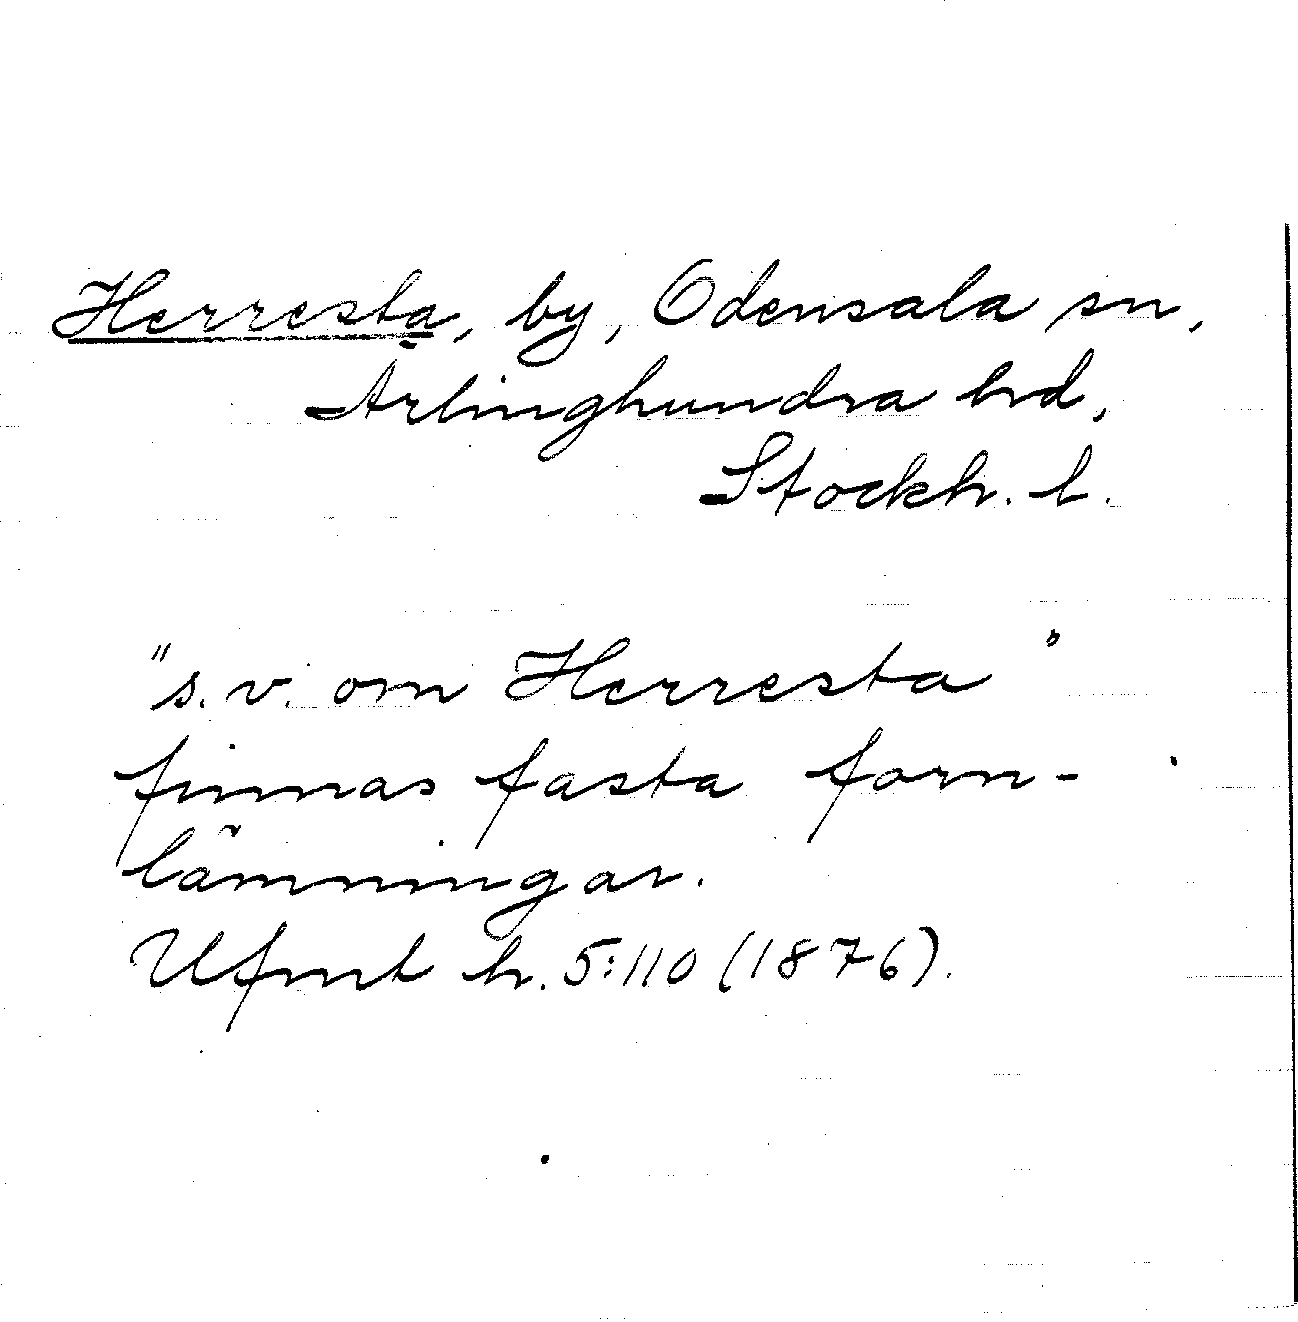 Herresta, by, Odensala sn,
Ärlinghundra hd,
Stockh. l.
"s.v. om Herresta"
finnas fasta forn-
lämningar.
Ufmt h. 5:110 (1876).